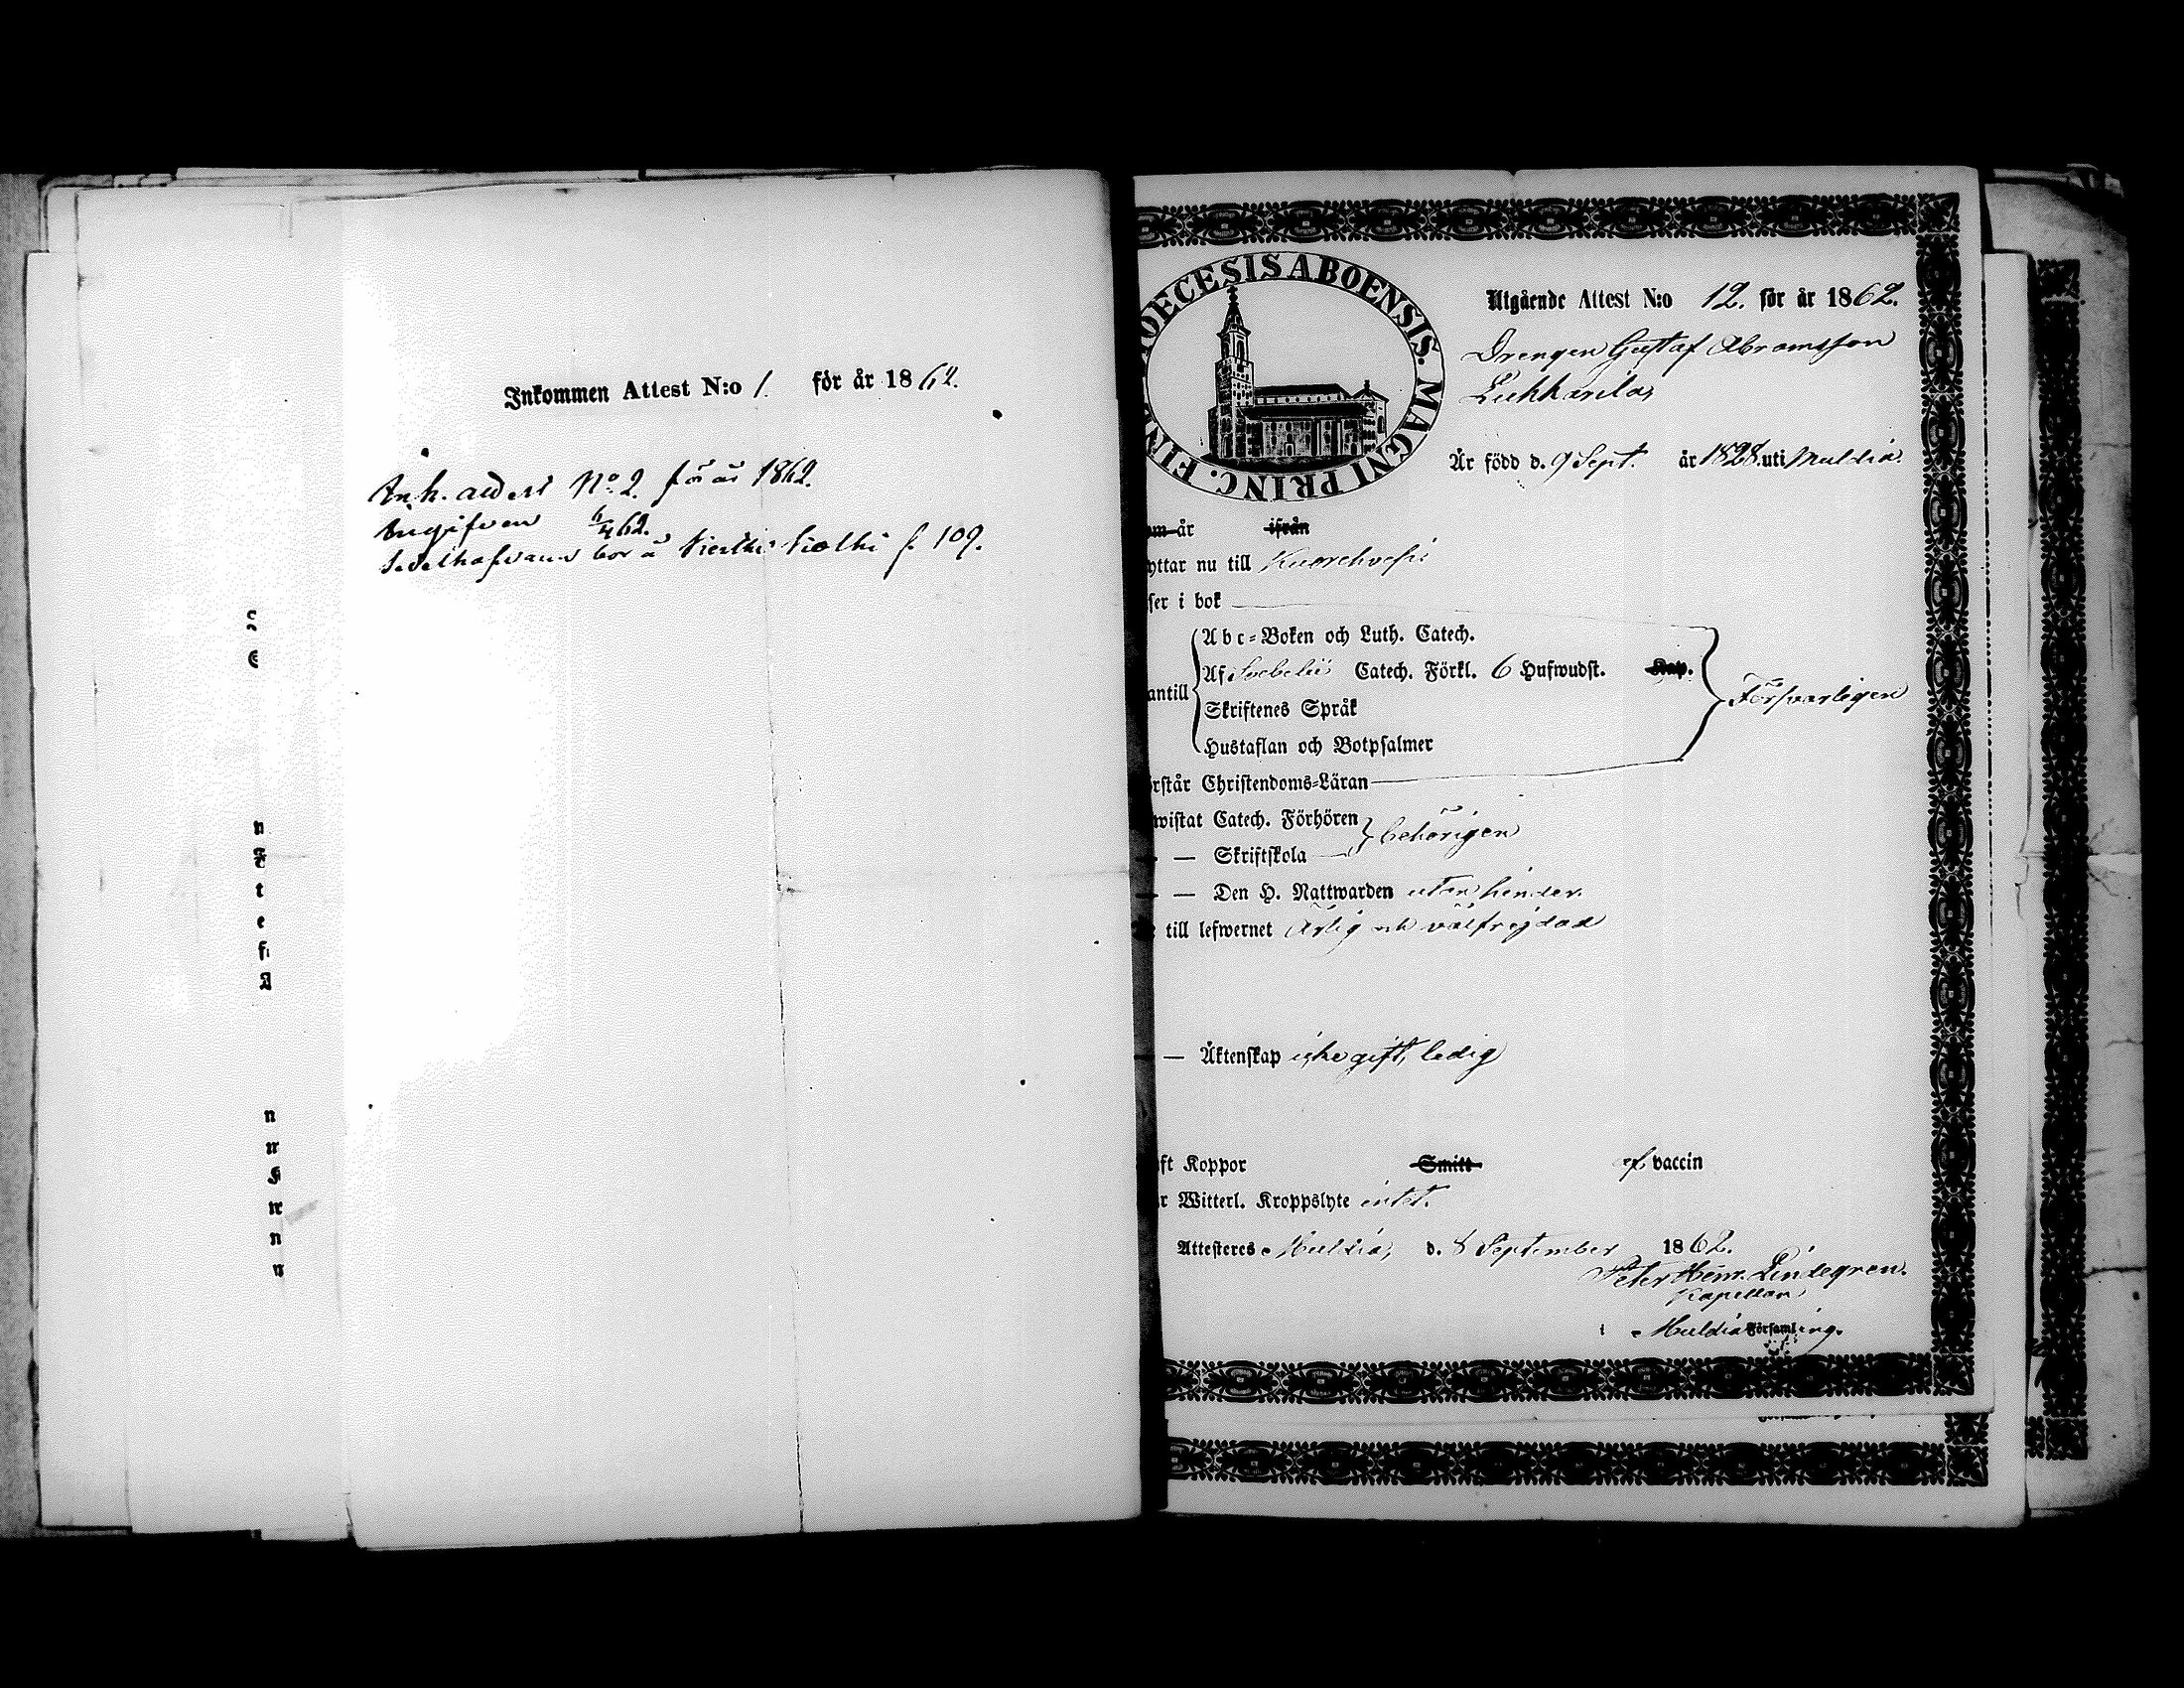 Inkommen Attest N:o 1. för år 1862.
Ink. attest No 2. för år 1862.
Ingifven 6/4 62.
bor å f. 109.
DIOECESIS ABOENSIS. MAGNI PRINC. FINL
Utgående Attest N:o 12. för år 1862.
Drengen Gustaf Abramsson
Är född d. 9 Sept. år 1828. uti Muldia.
om år ifrån
yttar nu till Kuorehvesi
ser i bok
Abc-Boken och Luth. Catech.
Af Svebelii Catech. Förkl. 6 Hufwudst. Kap.
antill
Skriftenes Språk
Försvarligen
Hustaflan och Botpsalmer
rstår Christendoms-Läran
wistat Catech. Förhören
behörigen
— Skriftskola
— — Den H. Nattwarden utan hinder.
till lefwernet Ärlig och välfrejdad
— Äktenskap icke gift, ledig
ft Koppor Smitt af vaccin
r Witterl. Kroppslyte intet.
Attesteres Muldia, d. 8 September 1862.
Peter Henr. Lindegren.
Kapellan
i Muldia Församling.